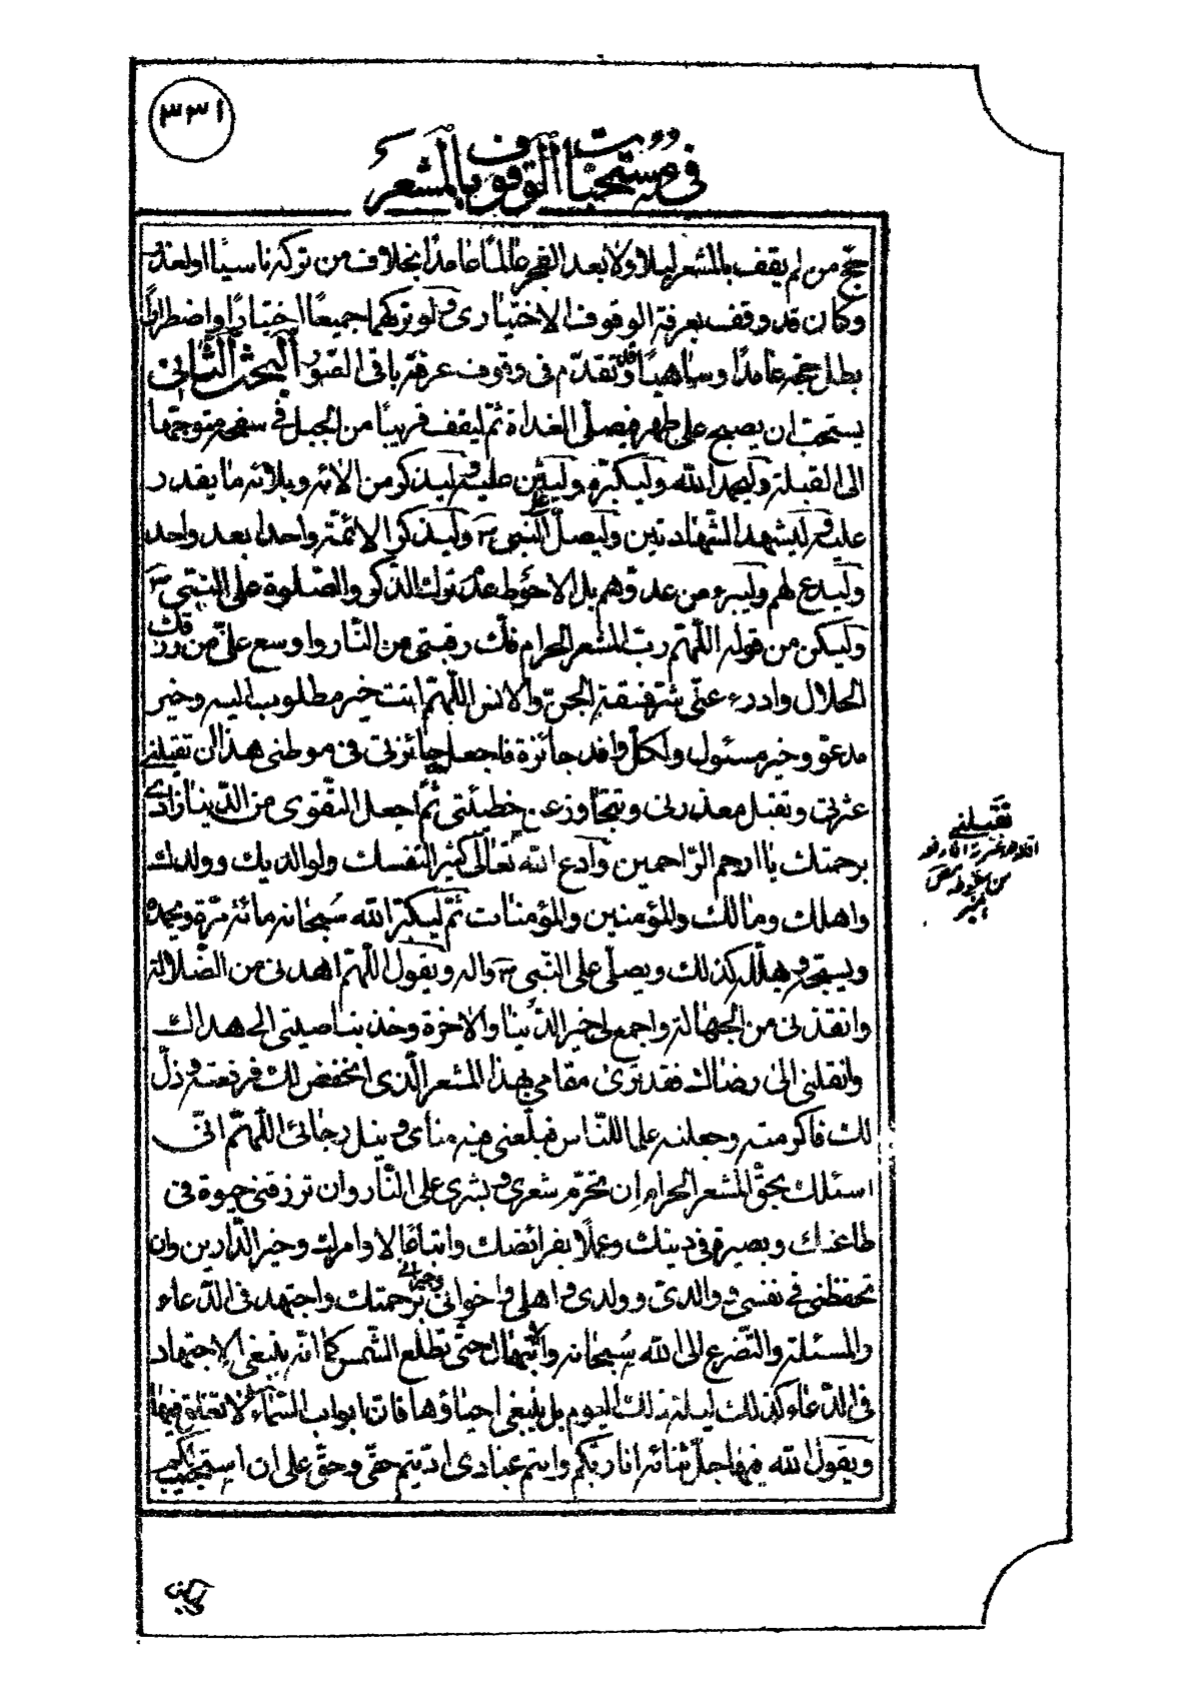 ٣٣١
في مستحبات الوقوف بالمشعر
حجّ من لم يقف بالمشعر ليلا ولا بعد الفجر عالمًا عامدًا بخلاف من تركه ناسيًا او لعذر
وكان قد وقف بعرفة الوقوف الاختياری ولو تركهما جميعًا اختيارًا واضطرارًا
بطل حجه عامدًا وساهيًا وقد تقدّم فی وقوف عرفة باقی الصّور البحث الثّانی
يستحبّ ان يصبح علی طهر فيصلّی الغداة ثمّ ليقف قريبًا من الجبل فی سفحه متوجّهًا
الی القبلة وليحمد الله وليكبّره وليثن عليه وليذكر من الائه وبلائه ما يقدر
عليه وليشهد الشّهادتين وليصلّ علی النّبی ص وليذكر الائمّة واحدا بعد واحد
وليدع لهم وليبرء من عدوّهم بل الاحوط عدم ترك الذّكر والصّلوة علی النّبی ص
وليكن من قوله اللّهمّ ربّ المشعر الحرام فكّ رقبتی من النّار واوسع علیّ من رزقك
الحلال وادرء عنّی شرّ فسقة الجنّ والانس اللّهمّ انت خير مطلوب اليه وخير
مدعوّ وخير مسئول ولكلّ وافد جائزة فاجعل جائزتی فی موطنی هذا ان تقيلنی
عثرتی وتقبل معذرتی وتتجاوز عن خطيئتی ثمّ اجعل التّقوی من الدّنيا زادی
برحمتك يا ارحم الرّاحمين وادع الله تعالی كثيرا لنفسك ولوالديك وولدك
واهلك ومالك والمؤمنين والمؤمنات ثمّ ليكبّر الله سبحانه مائة مرّة ويحمده
ويسبّحه ويهلّله كذلك ويصلّی علی النّبی ص واله ويقول اللّهمّ اهدنی من الضّلالة
وانقذنی من الجهالة واجمع لی خير الدّنيا والاخرة وخذ بناصيتی الی هداك
وانقلنی الی رضاك فقد تری مقامی بهذا المشعر الّذی انخفض لك فرفعته وذلّ
لك فاكرمته وجعلته علما للنّاس فبلّغنی فيه منای ونيل رجائی اللّهمّ انّی
اسئلك بحقّ المشعر الحرام ان تحرّم شعری وبشری علی النّار وان ترزقنی حيوة فی
طاعتك وبصيرة فی دينك وعملًا بفرائضك واتباعًا لاوامرك وخير الدّارين وان
تحفظنی فی نفسی ووالدیّ وولدی واهلی واخوانی وجيرانی برحمتك واجتهد فی الدّعاء
والمسئلة والتّضرع الی الله سبحانه والابتهال حتّی تطلع الشّمس كما انّه ينبغی الاجتهاد
فی الدّعاء كذلك ليلة ذلك اليوم بل ينبغی احياؤها فان ابواب السّماء لا تغلق فيها
ويقول الله فيها جلّ ثنائه انا ربّكم وانتم عبادی ادّيتم حقّی وحقّ علی ان استجيب لكم
تقيلنی